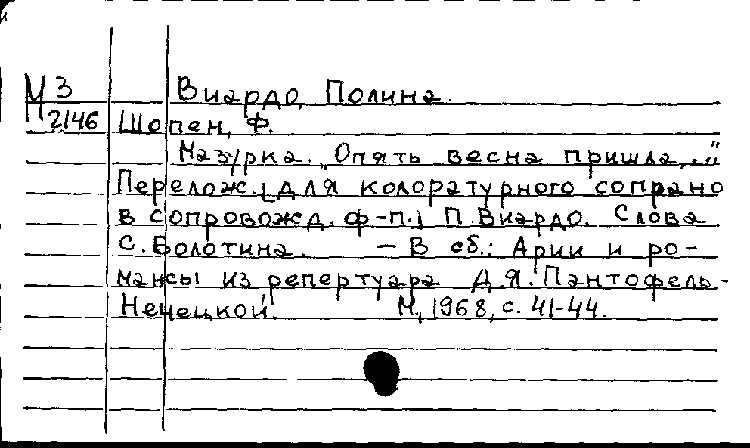 М 3 Виардо, Полина.
2146 Шопен, Ф.
Мазурка. „Опять весна пришла..."
Перелож. [для колоратурного сопрано
в сопровожд. ф-п.] П. Виардо. Слова
С. Болотина. – В сб.: Арии и ро-
мансы из репертуара Д.Я. Пантофель-
Нечецкой. М., 1968, с. 41-44.